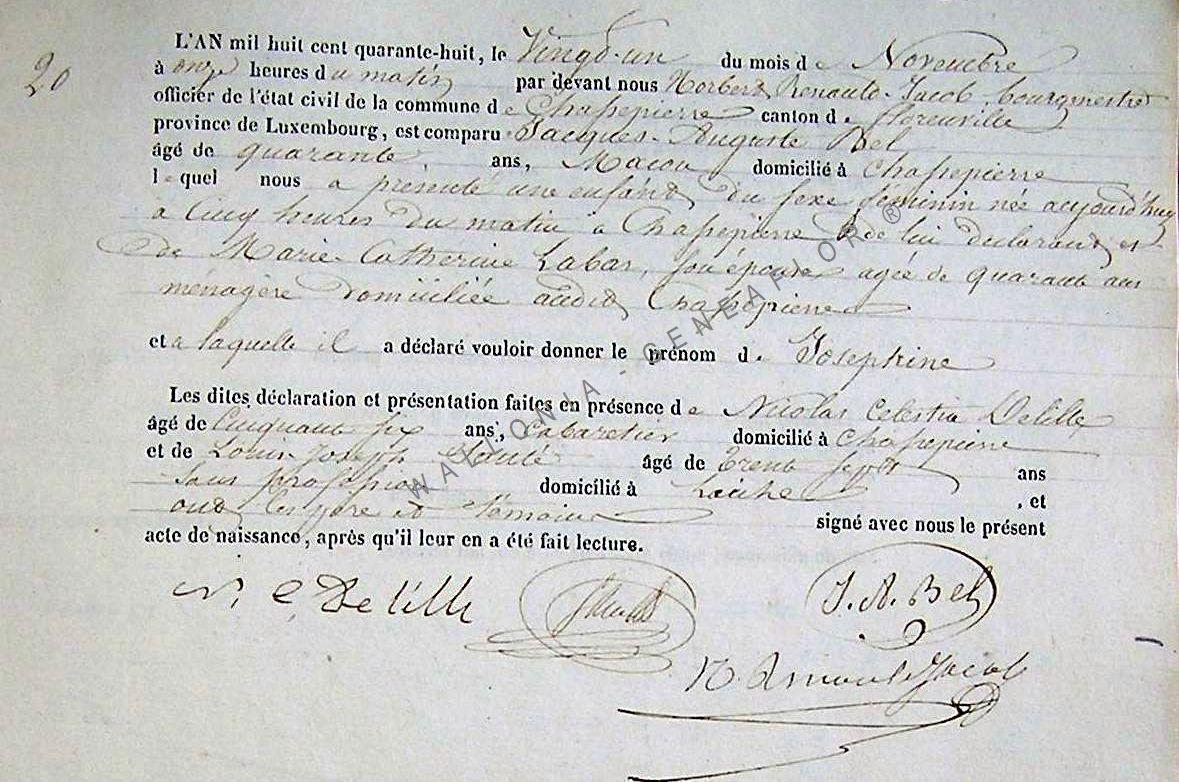 20
L'AN mil huit cent quarante-huit, le Vingt-un du mois de Novembre
à onze heures du matin par devant nous Norbert Renauld-Jacob, bourgmestre
officier de l'état civil de la commune de Chassepierre canton de Florenville
province de Luxembourg, est comparu Jacques-Auguste Bel
âgé de quarante ans, Macon domicilié à Chassepierre
lequel nous a présenté une enfant du sexe féminin née aujourd'huy
a Cinq heures du matin a Chassepierre de lui declarant et
de Marie-Catherine Labar, son épouse agée de quarante ans
ménagère domiciliée audit Chassepierre
et a laquelle il a déclaré vouloir donner le prénom de Josephine
Les dites déclaration et présentation faites en présence de Nicolas Celestin Delille,
âgé de Cinquante six ans, Cabaretier domicilié à Chassepierre
et de Louis Joseph âgé de trente sept ans
sans profession domicilié à Laiche, et
ont les pere et témoins signé avec nous le présent
acte de naissance, après qu'il leur en a été fait lecture.
N. C Delille
J. A. Bel
N. Jacob
WALLONIA - GENEAFLOR ®